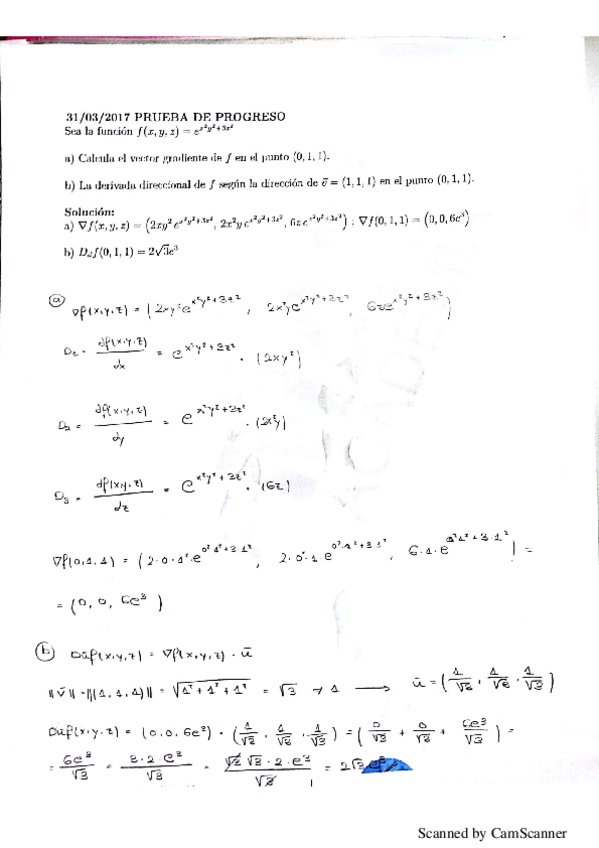 31/03/2017 PRUEBA DE PROGRESO
Sea la función f(x, y, z) = e^{x²y²+3z²}
a) Calcula el vector gradiente de f en el punto (0, 1, 1).
b) La derivada direccional de f según la dirección de v̄ = (1, 1, 1) en el punto (0, 1, 1).
Solución:
a) ∇f(x, y, z) = (2xy² e^{x²y²+3z²}, 2x²y e^{x²y²+3z²}, 6z e^{x²y²+3z²}) ; ∇f(0, 1, 1) = (0, 0, 6e³)
b) D_ū f(0, 1, 1) = 2√3e³
ⓐ ∇f(x,y,z) = (2xy²e^{x²y²+3z²}, 2x²ye^{x²y²+3z²}, 6ze^{x²y²+3z²})
D₁ = df(x,y,z)/dx = e^{x²y²+3z²} · (2xy²)
D₂ = df(x,y,z)/dy = e^{x²y²+3z²} · (2x²y)
D₃ = df(x,y,z)/dz = e^{x²y²+3z²} · (6z)
∇f(0,1,1) = (2·0·1²·e^{0²·1²+3·1²}, 2·0²·1·e^{0²·1²+3·1²}, 6·1·e^{0²·1²+3·1²}) =
= (0, 0, 6e³)
ⓑ Dūf(x,y,z) = ∇f(x,y,z) · ū
‖v̄‖ = ‖(1,1,1)‖ = √(1²+1²+1²) = √3 ≠ 1 → ū = (1/√3, 1/√3, 1/√3)
Dūf(x,y,z) = (0,0,6e³) · (1/√3, 1/√3, 1/√3) = (0/√3 + 0/√3 + 6e³/√3) =
= 6e³/√3 = 3·2·e³/√3 = √3·√3·2·e³/√3 = 2√3e³
Scanned by CamScanner